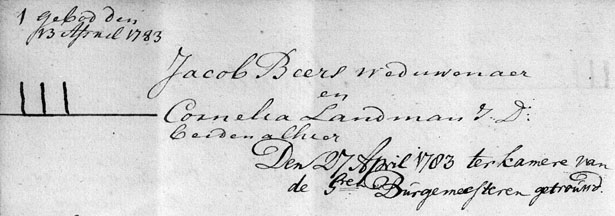 1 gebod den
13 April 1783
Jacob Beers weduwenaer
en
Cornelia Landman J. D.
beiden alhier
Den 27 April 1783 ter kamere van
de Gret Burgemeesteren getrouwd.